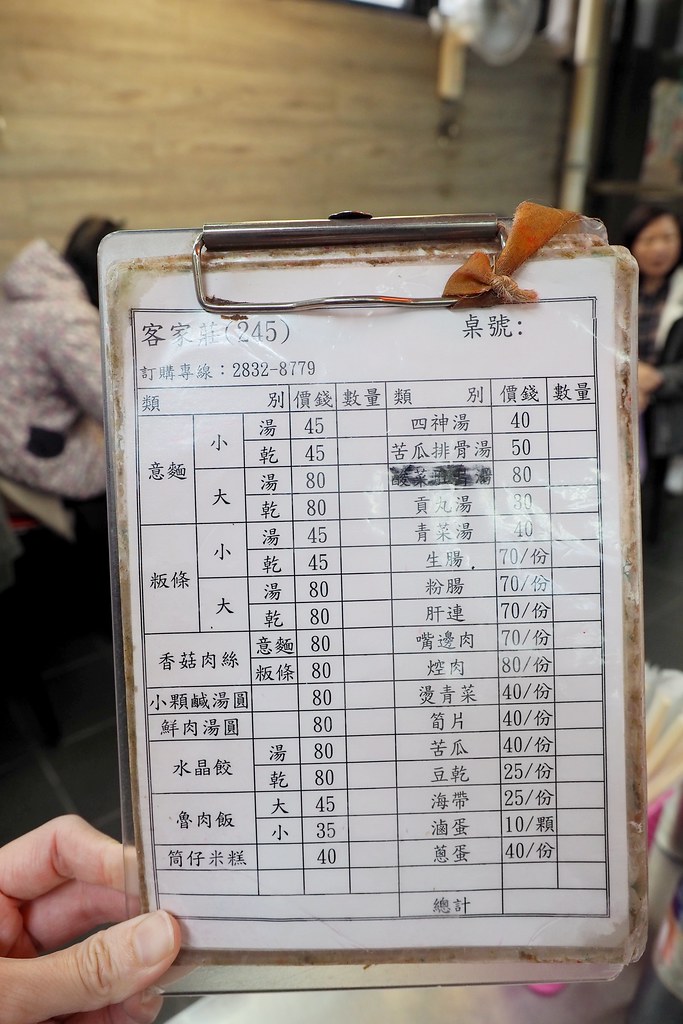 客家莊(245) 桌號:
訂購專線：2832-8779
類 別 價錢 數量 類 別 價錢 數量
意麵 小 湯 45 四神湯 40
乾 45 苦瓜排骨湯 50
大 湯 80 酸菜 湯 80
乾 80 貢丸湯 30
粄條 小 湯 45 青菜湯 40
乾 45 生腸 70/份
大 湯 80 粉腸 70/份
乾 80 肝連 70/份
香菇肉絲 意麵 80 嘴邊肉 70/份
粄條 80 焢肉 80/份
小顆鹹湯圓 80 燙青菜 40/份
鮮肉湯圓 80 筍片 40/份
水晶餃 湯 80 苦瓜 40/份
乾 80 豆乾 25/份
魯肉飯 大 45 海帶 25/份
小 35 滷蛋 10/顆
筒仔米糕 40 蔥蛋 40/份
總計